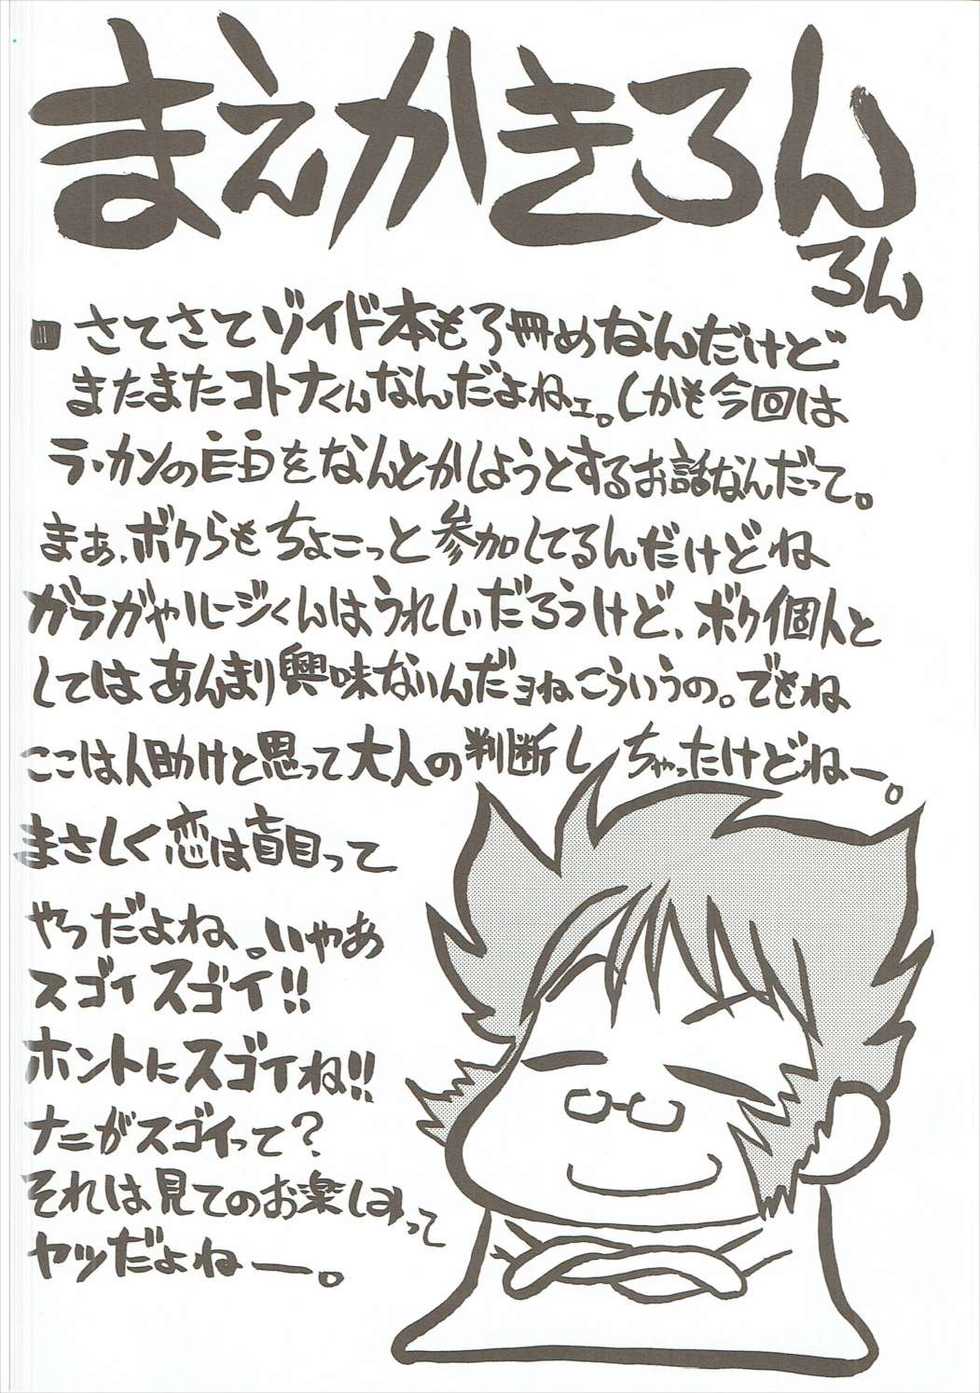 まえかきろん
ろん
さてさてゾイド本も3冊めなんだけど
またまたコトナくんなんだよねェ。しかも今回は
ラ・カンのEDをなんとかしようとするお話なんだって。
まぁ、ボクらもちょこっと参加してるんだけどね
ガラガャルージくんはうれしいだろうけど、ボク個人と
してはあんまり興味ないんだョねこういうの。でもね
ここは人助けと思って大人の判断しちゃったけどねー。
まさしく恋は盲目って
やつだよね。いやぁ
スゴイスゴイ!!
ホントにスゴイね!!
ナニがスゴイって?
それは見てのお楽しみって
ヤツだよねー。